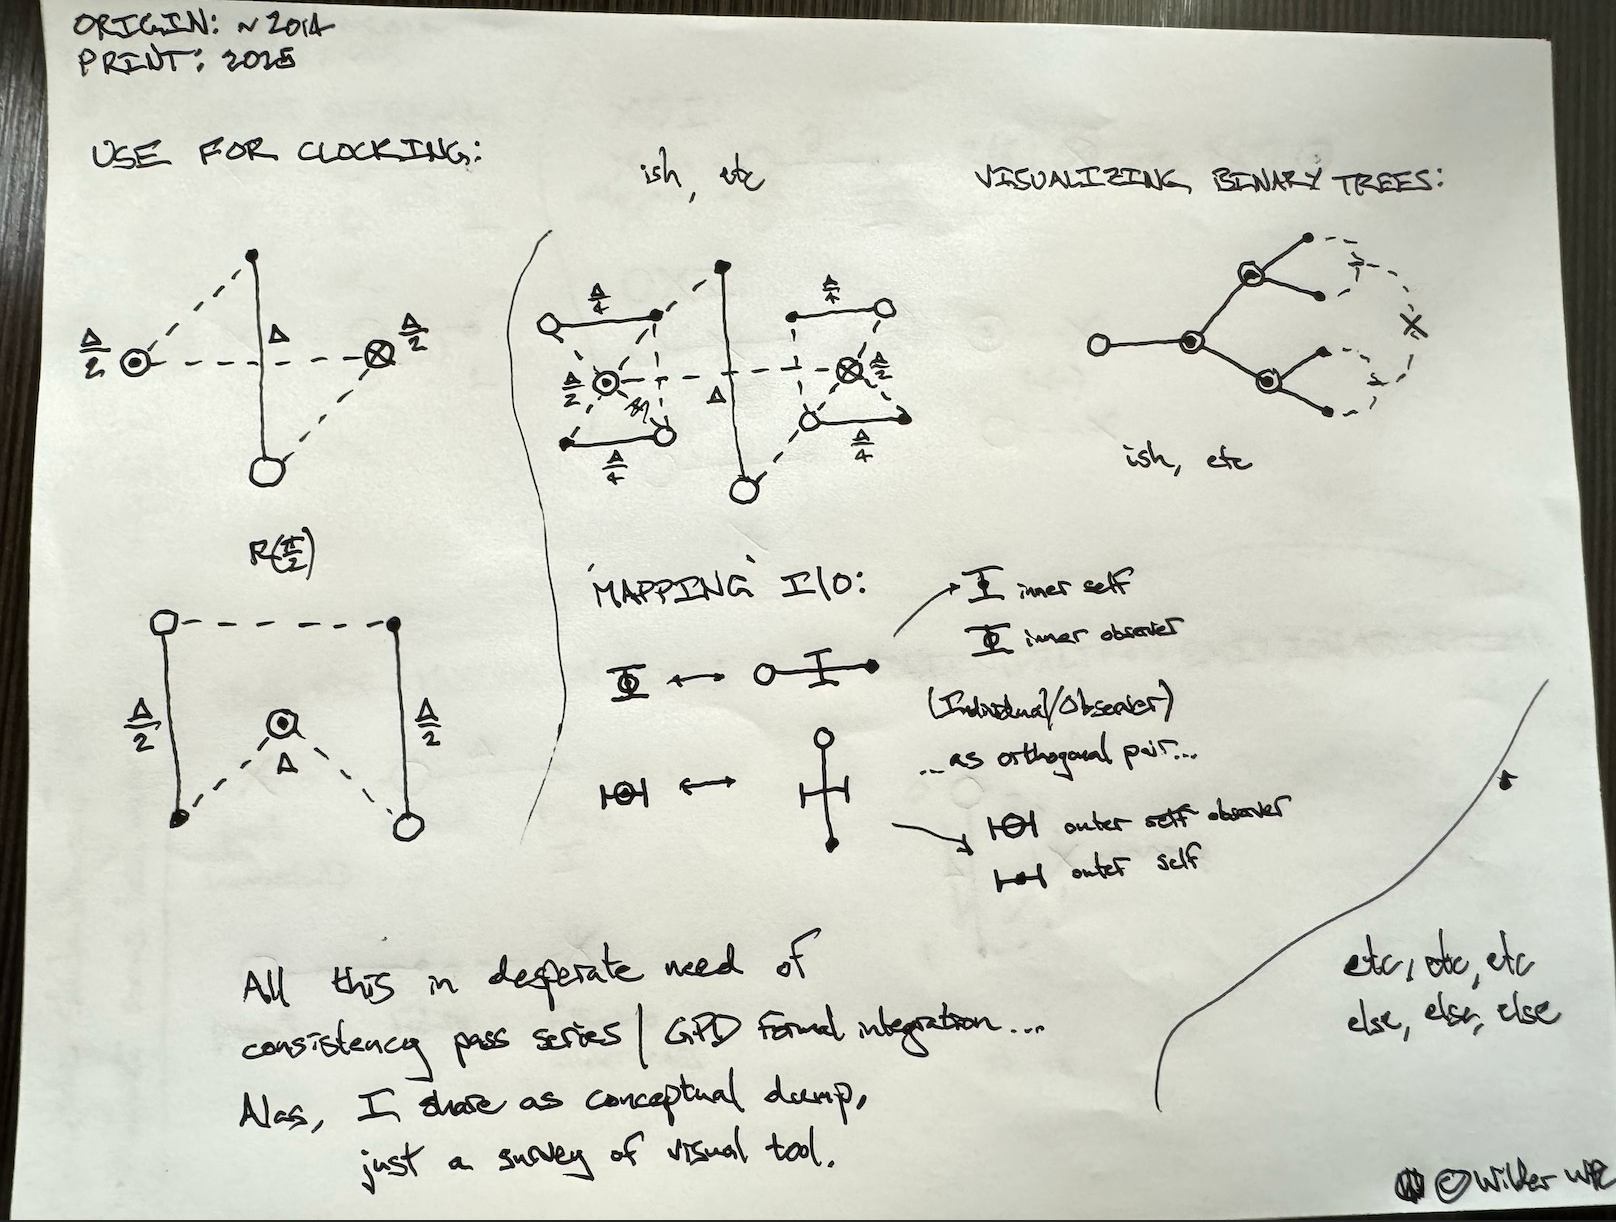 ORIGIN: ~ 2014
PRINT: 2025
USE FOR CLOCKING:
Δ/2
Δ
Δ/2
R(π/2)
Δ/2
Δ
Δ/2
ish, etc
Δ/4
Δ/4
Δ/2
Δ
Δ/2
Δ/4
Δ/4
VISUALIZING BINARY TREES:
ish, etc
'MAPPING' I/O:
inner self
inner observer
(Individual/Observer)
...as orthogonal pair...
outer self observer
outer self
All this in desperate need of
consistency pass series | GPD formal integration...
Alas, I share as conceptual dump,
just a survey of visual tool.
etc, etc, etc
else, else, else
Wilder